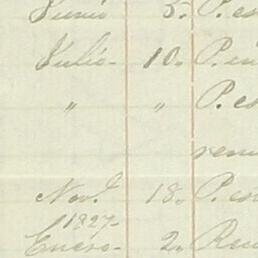 Junio 5. P. es
Julio- 10. P. en
" " P. es
ren
Nov.e 18. P. es
1827-
Enero- 2. Rec